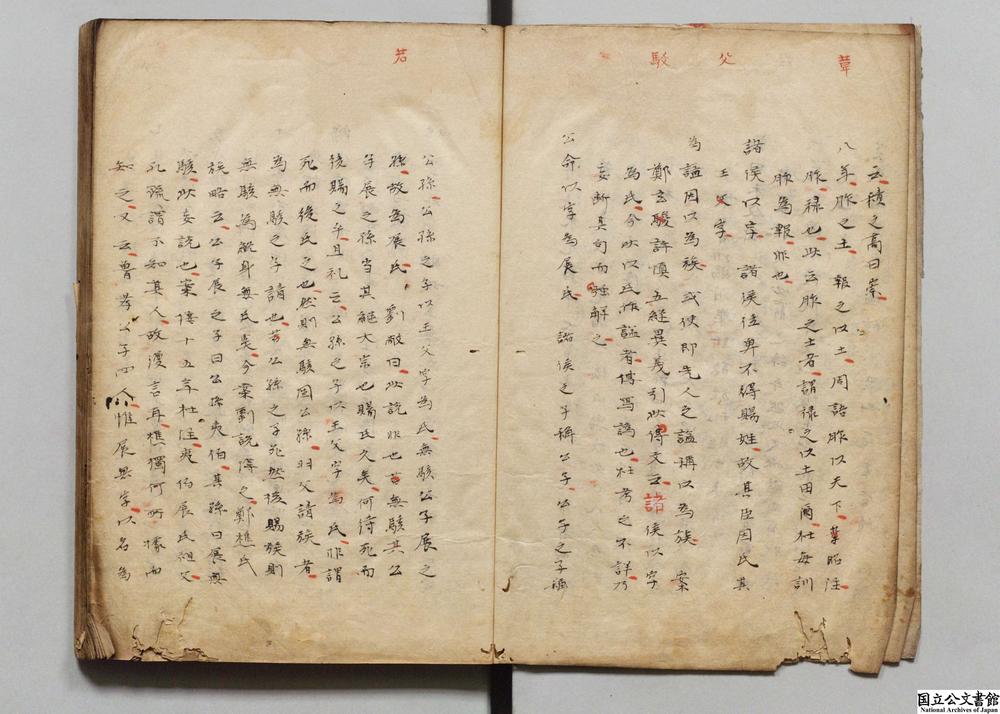 葦
父
駁
若
云積之高曰崇
八年胙之土　報之以土　周語胙以天下　韋昭注
胙祿也此云胙之土者謂祿之以土田爾杜每訓
胙為報非也
諸侯以字　諸侯位卑不得賜姓故其臣因氏其
王父字
為謚因以為族　或使即先人之謚稱以為族　案
鄭玄駁許慎五經異義引此傳文云諸侯以字
為氏今此以氏作謚者傳寫譌也杜考之不詳乃
妄斷其句而強解之
公命以字為展氏　諸侯之子稱公子公子之子稱
公孫公孫之子以王父字為氏無駭公子展之
孫故為展氏　劉敞曰此說非也若無駭真公
子展之孫當其繼大宗也賜氏久矣何待死而
後賜之乎且禮云公孫之子以王父字為氏非謂
死而後氏之也然則無駭固公孫羽父請族者
為無駭之子請也若公孫之子死然後賜族則
無駭為終身無氏矣今案劉說得之鄭樵氏
族略云公子展之子曰公孫夷伯其孫曰展無
駭此妄說也案僖十五年杜注夷伯展氏祖父
孔疏謂不知其人故漫言再樵獨何所據而
知之又云魯孝公子四人惟展無字以名為
国立公文書館
National Archives of Japan